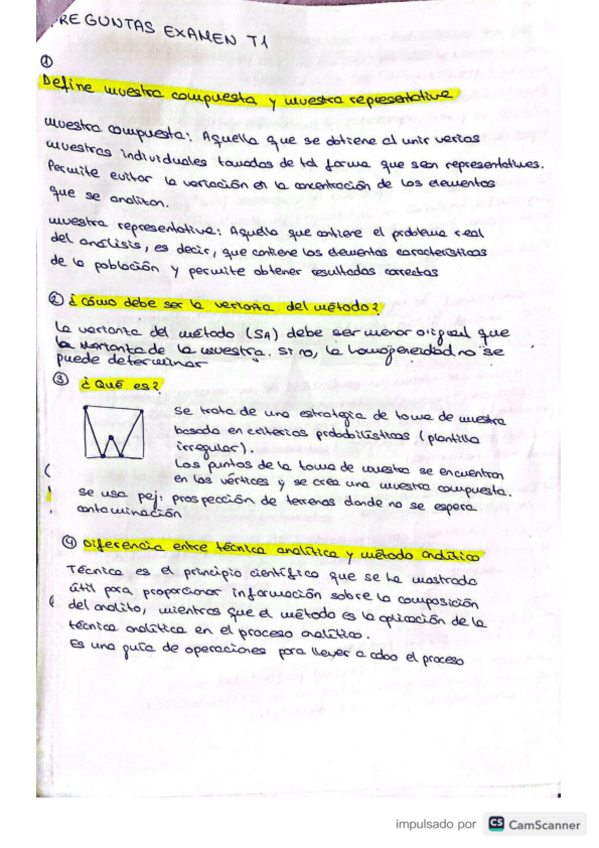 PREGUNTAS EXAMEN T1
①
Define muestra compuesta y muestra representativa
muestra compuesta: Aquella que se obtiene al unir varias
muestras individuales tomadas de tal forma que sean representativas.
Permite evitar la variación en la concentración de los elementos
que se analizan.
muestra representativa: Aquella que contiene el problema real
del análisis, es decir, que contiene los elementos característicos
de la población y permite obtener resultados correctos
② ¿cómo debe ser la varianza del método?
La varianza del método (SA) debe ser menor o igual que
la varianza de la muestra. Si no, la homogeneidad no se
puede determinar
③ ¿Qué es?
Se trata de una estrategia de toma de muestra
basada en criterios probabilísticos (plantilla
irregular).
Los puntos de la toma de muestra se encuentran
en los vértices y se crea una muestra compuesta.
Se usa pej: prospección de terrenos donde no se espera
contaminación
④ Diferencia entre técnica analítica y método analítico
Técnica es el principio científico que se ha mostrado
útil para proporcionar información sobre la composición
del analito, mientras que el método es la aplicación de la
técnica analítica en el proceso analítico.
Es una guía de operaciones para llevar a cabo el proceso
impulsado por CS CamScanner